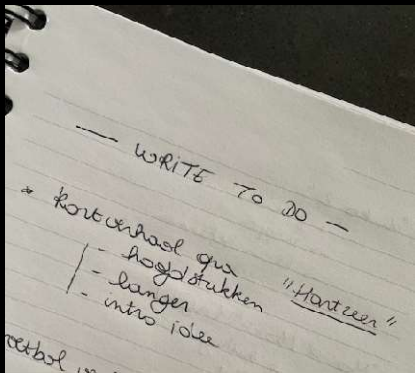 — WRITE TO DO —
* Kortverhaal qua "Hartzeer"
- hoofdstukken
- langer
- intro idee